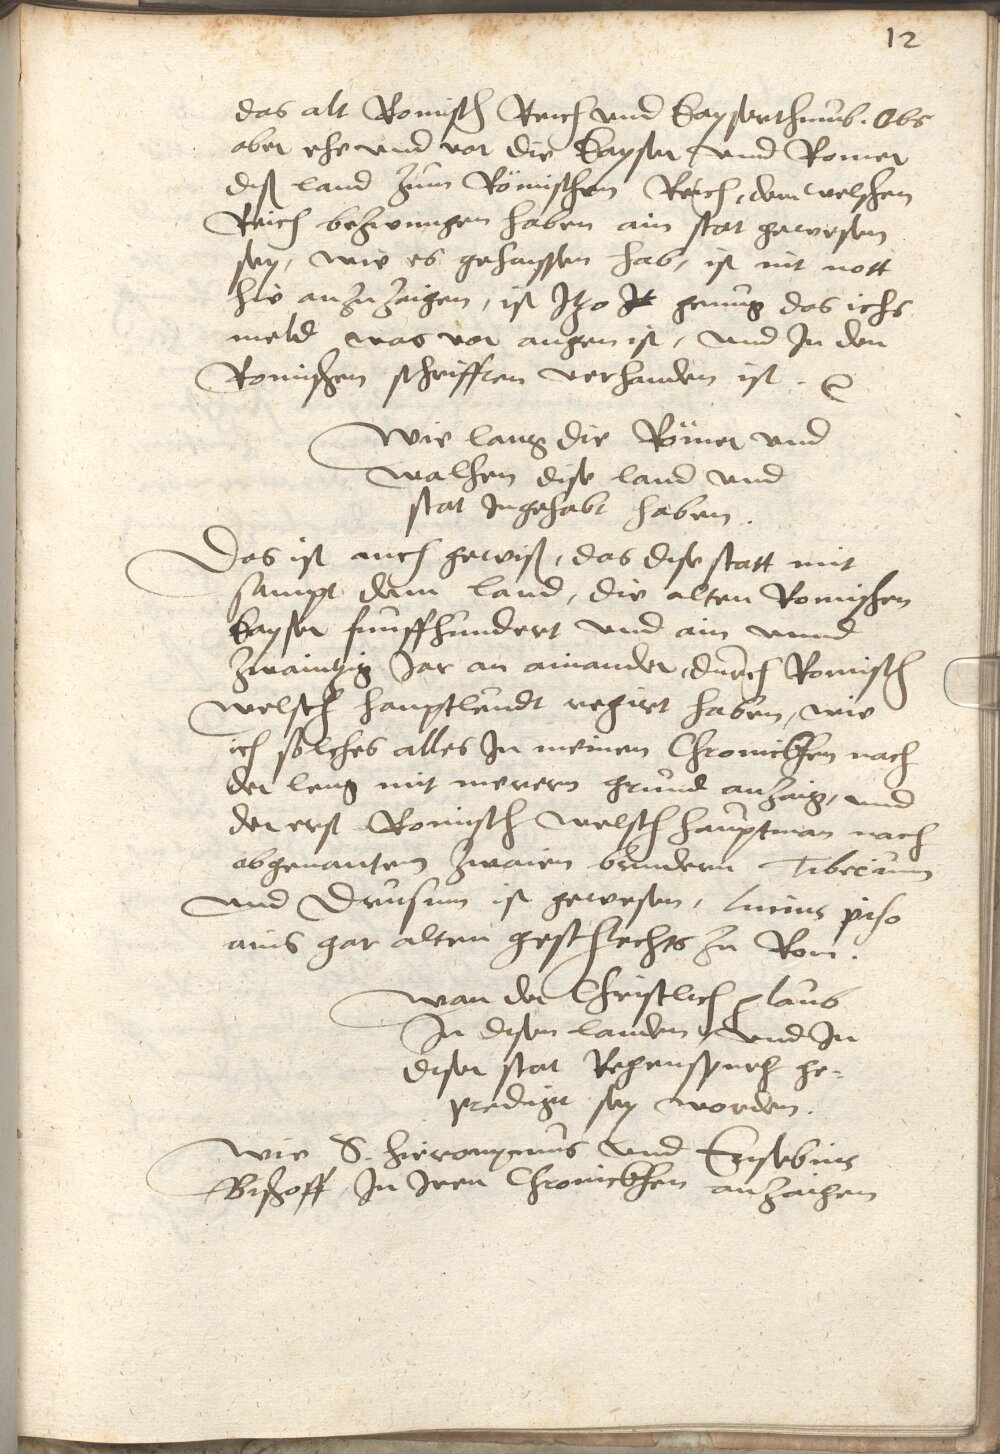 12
das alt Romisch Reich und Kayserthumb. Obs
aber ehe und vor die Kayser und Romer
diß land zum Römischen Reich, dem welschen
Reich bezwungen haben ain stat gewesen
sey, wie es gehayssen hab, ist nit nott
hie anzuzaigen, ist Itzo genug das ichs
meld was vor augen ist, und In den
Romischen schrifften verhanden ist.
Wie lang die Römer und
walhen dise land und
stat Ingehabt haben.
Das ist auch gewiß, das dise statt mit
sampt dem land, die alten Romischen
Kayser funffhundert und ain unnd
zwaintzig Jar an ainander, durch Romisch
welsch hauptleudt regirt haben, wie
ich solches alles In meinen Chronickhen nach
der leng mit merern grund anzaig, und
der erst Romisch welsch hauptman nach
obgenanten zwaien brudern Tiberium
und Drusum ist gewesen, Lucius piso
ains gar alten geschlechts zu Rom.
Wan der Christlich glaub
In disen landen, und In
diser stat Regenspurg ge-
predigt sey worden.
Wie S. Hieronymus und Eusebius
Bischoff In Iren Chronickhen anzaigen